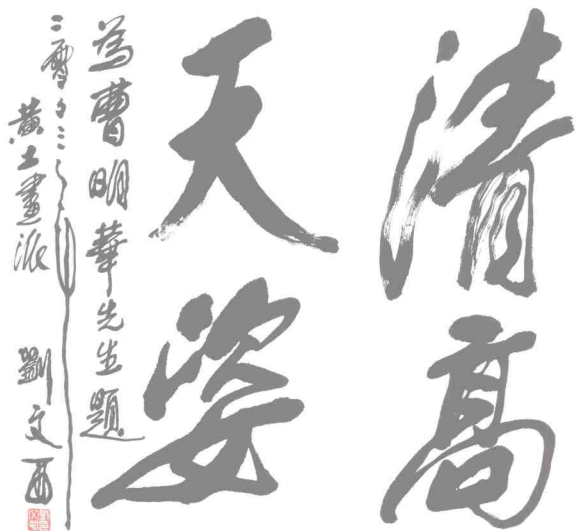 清高
天姿
為曹明華先生題
二零
黄土畫派 劉文西